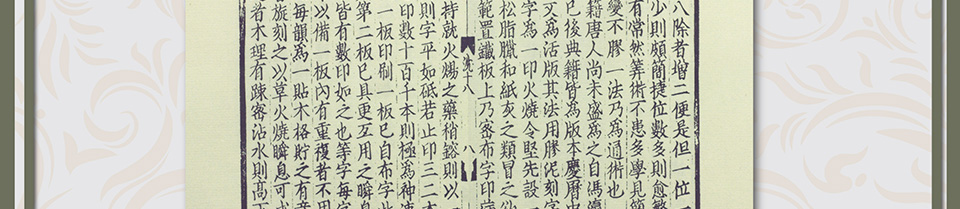 八除者增二便是但一位一
少則頗簡捷位數多則愈繁
有常然筭術不患多學見簡
變不膠一法乃為通術也
籍唐人尚未盛為之自馮瀛
已後典籍皆為版本慶曆中
文為活版其法用膠泥刻字
字為一印火燒令堅先設一
松脂臘和紙灰之類冒之
範置鐵板上乃密布字印
卷十八 八
持就火煬之藥稍鎔則以一
則字平如砥若止印三二本
印數十百千本則極為神速
一板印刷一板已自布字此
第二板已具更互用之瞬息
皆有數印如之也等字每字
以備一板內有重複者不用
每韻為一貼木格貯之有奇
旋刻之以草火燒瞬息可成
者木理有踈密沾水則高下